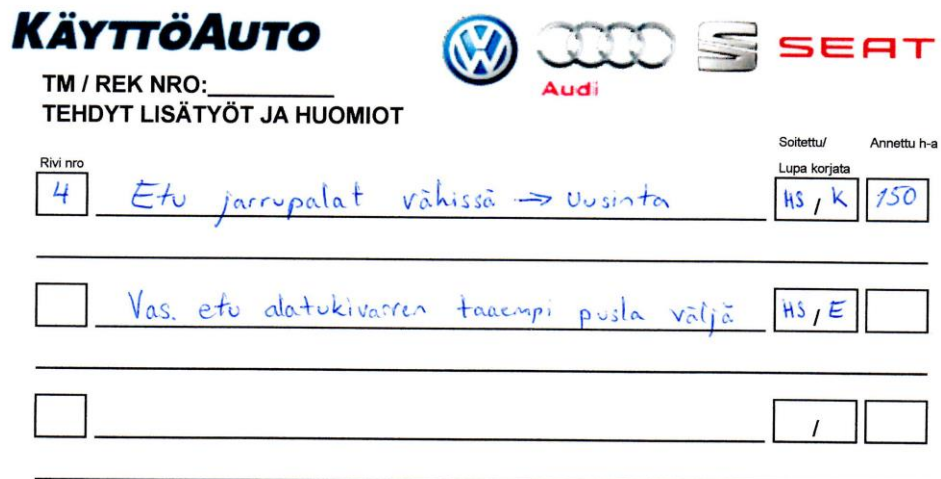 KÄYTTÖAUTO
Audi
SEAT
TM / REK NRO:
TEHDYT LISÄTYÖT JA HUOMIOT
Soitettu/ Annettu h-a
Rivi nro Lupa korjata
4 Etu jarrupalat vähissä → Uusinta HS / K 150
Vas. etu alatukivarren taaempi pusla väljä HS / E
/